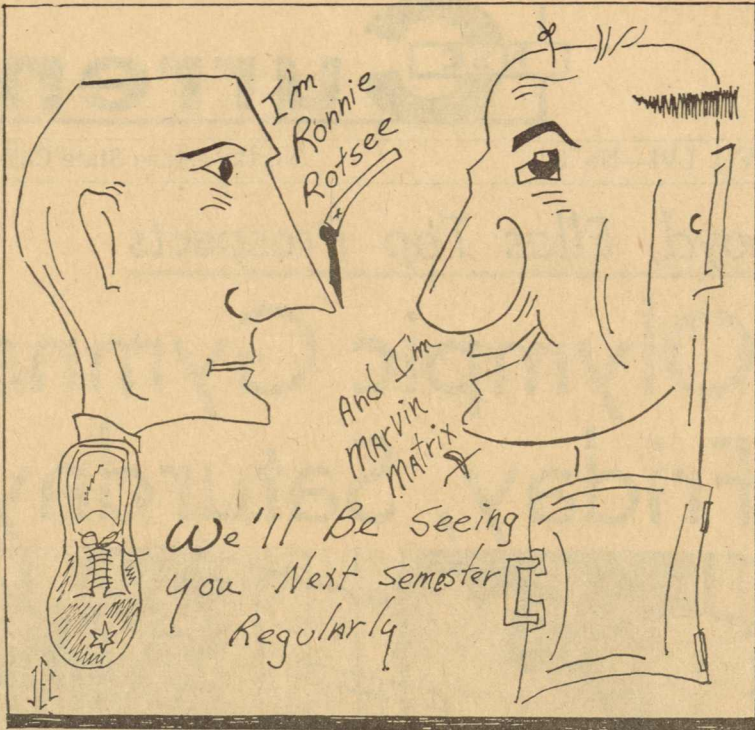 I'm
Ronnie
Rotsee
And I'm
Marvin
Matrix
We'll Be Seeing
you Next Semester
Regularly